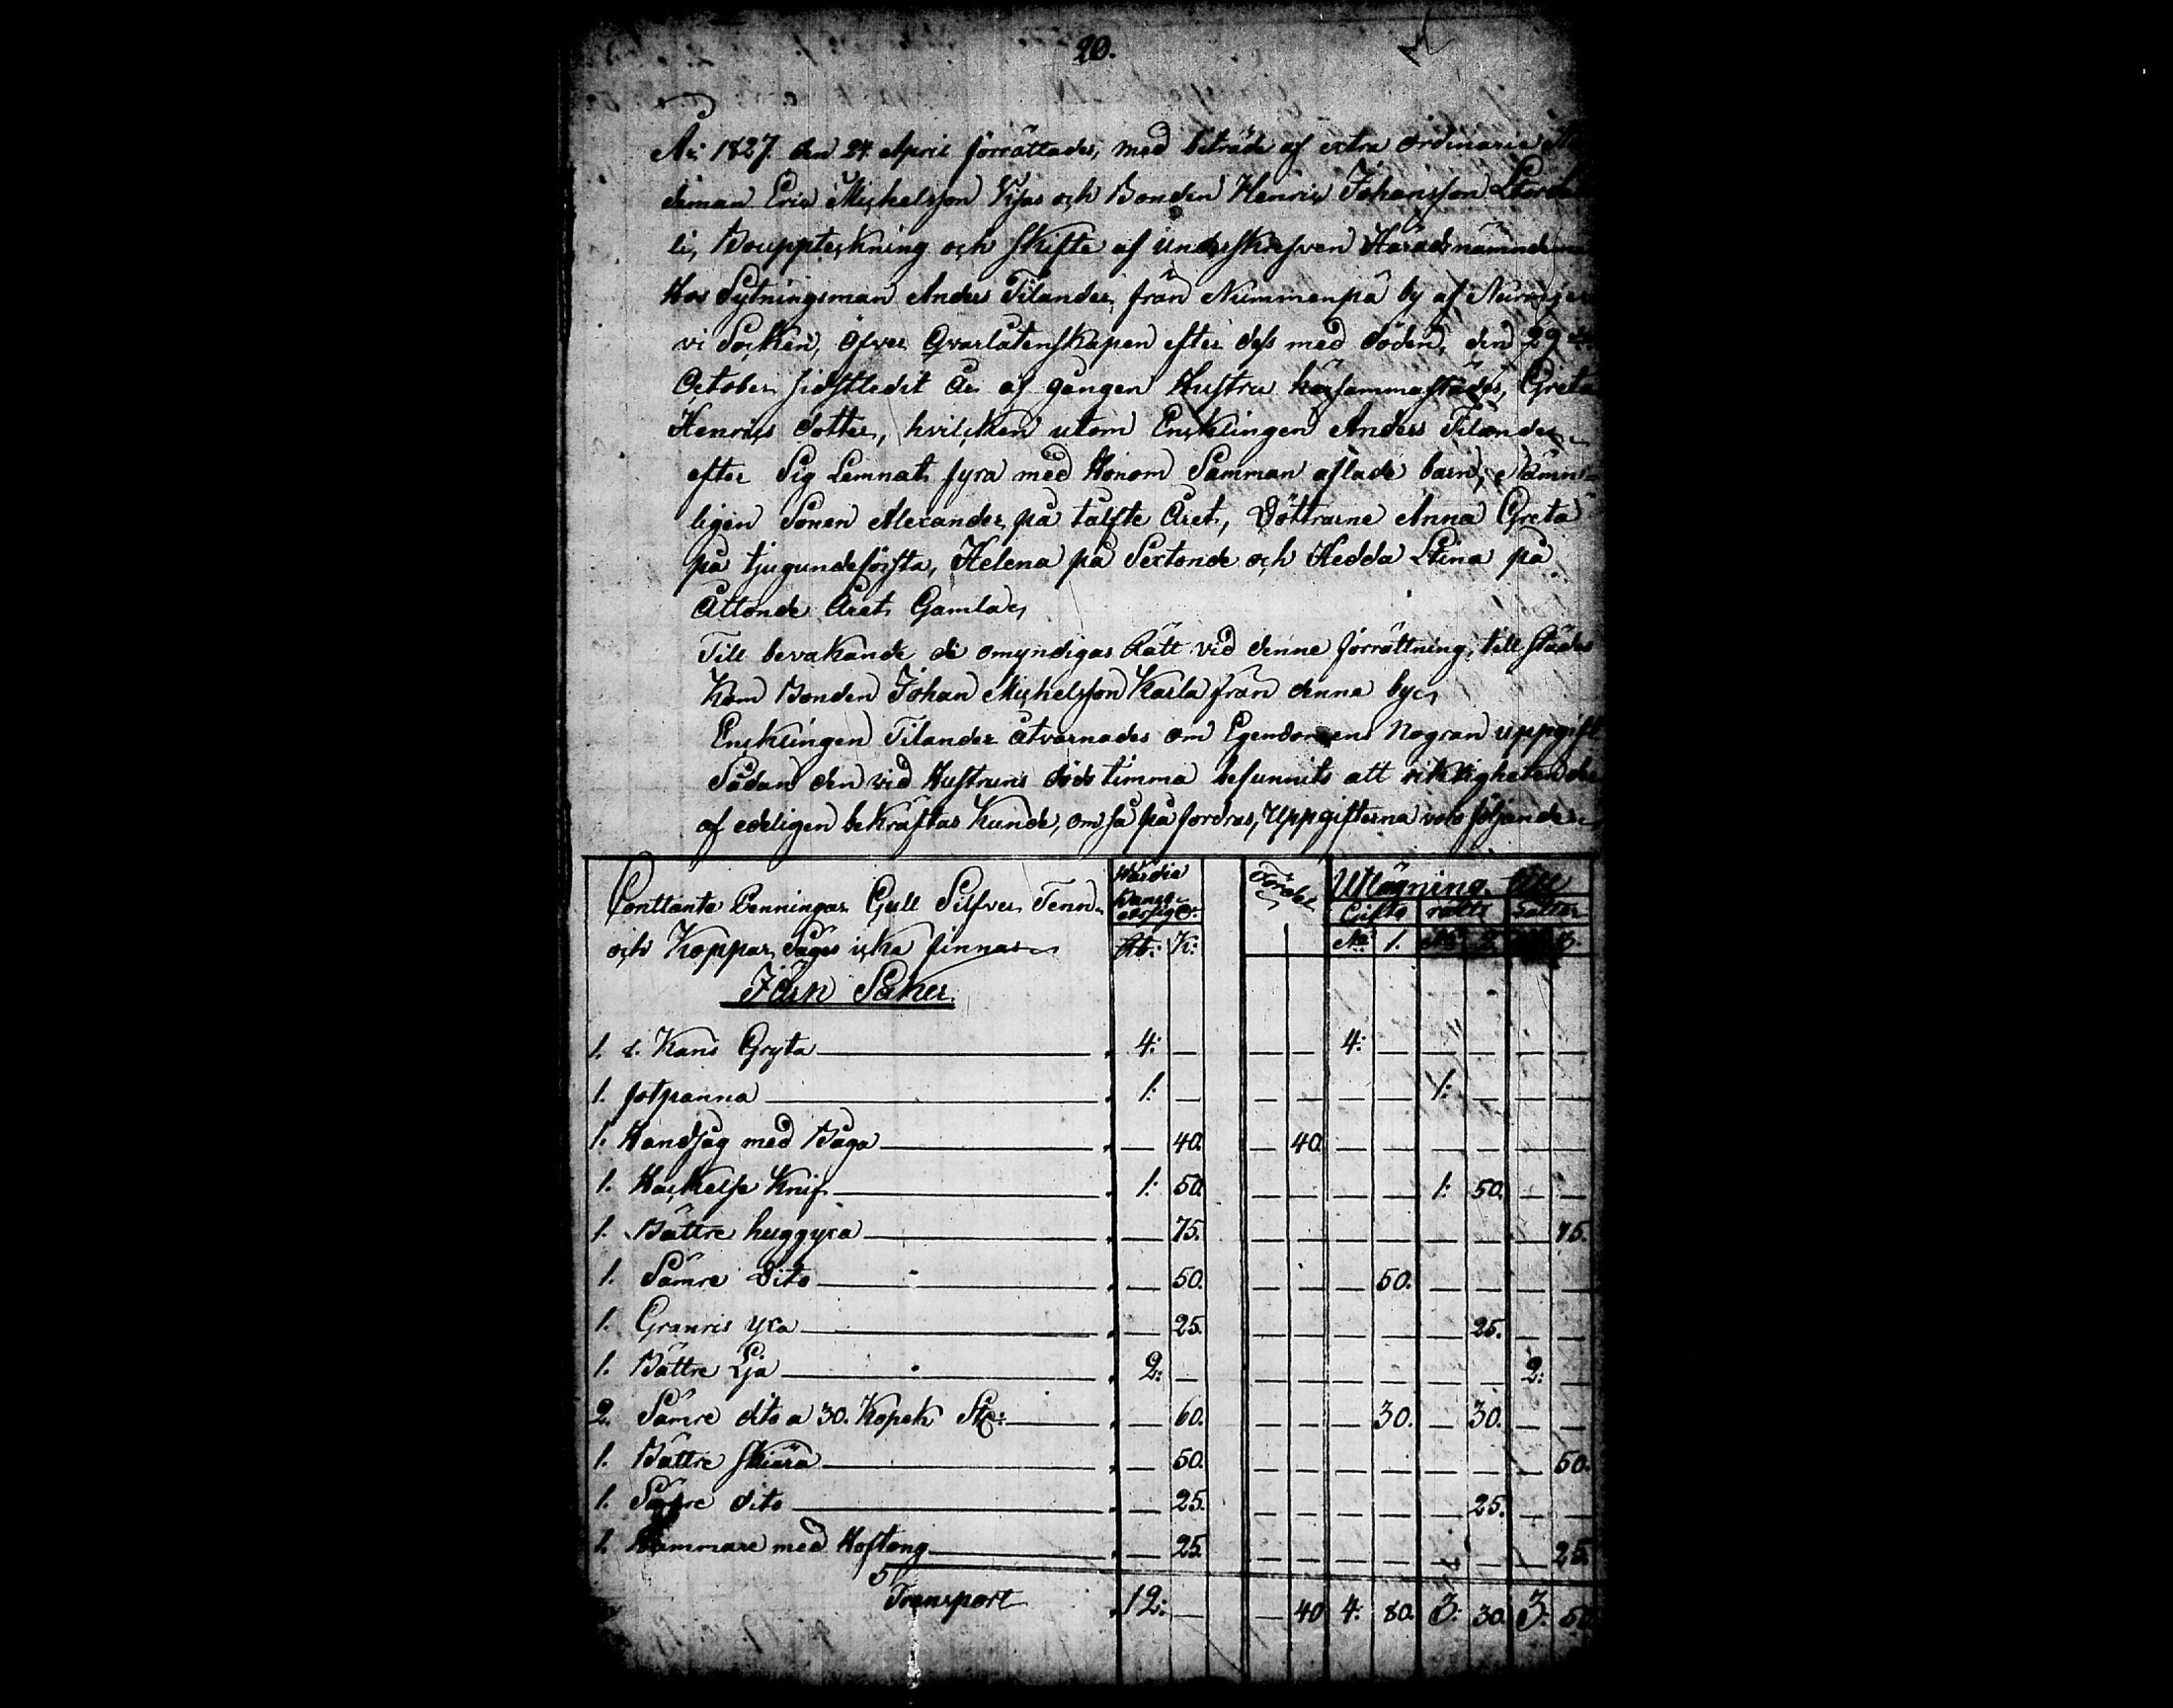 20.
År 1827. den 24 April förrättades, med biträde af extra ordinarie
deman Eric Michelsson Vijas och Bonden Henric Johansson
li, Bouppteckning och Skifte af underskrefven Häradsnämndema
Hos Sytningsman Anders Tilander, från Nummenpä by af Nurmijer
vi Socken, öfver Qvarlåtenskapen efter dess med döden, den 29
October sidstledit År af gången Hustru härsammastädes, Greta
Henrics dotter, hvilcken utom Encklingen Anders Tilander
efter Sig Lemnat fyra med Honom Samman aflade barn, Nämn-
ligen Sonen Alexander på tålfte Året, Döttrarne Anna Greta
på tjugundeförsta, Helena på Sextonde och Hedda Stina på
Åttonde Året Gamla
Till bevakande de omyndigas Rätt vid denne förrättning, till städes
Kom Bonden Johan Michelsson Karla från denna by
Encklingen Tilander åtvarnades om Egendomen Nogran uppgift
Sådan den vid Hustruns döds timma befunnits att riktigheten der
af edeligen bekräftas kunde, om så på fordras, Uppgifterna voro följande
Conttanta Penningar Gull Silfver Tenn Värdie Utlägning till
och Koppar Sages icke finnas Rb: K: Gifto rätts Lotter
No 1. No 2. 3.
Järn Saker
1. Kans Gryta 4: — — — 4: — — — — —
1. fotpanna 1: — — — — — 1: — — —
1. Handsåg med Båga — 40. — 40 — — — — — —
1. Hackelse Knif 1: 50. — — — — 1: 50. — —
1. Bättre huggyxa — 75. — — — — — — — 75.
1. Sämre Dito — 50. — — — 50. — — — —
1. Granris yxa — 25. — — — — — 25. — —
1. Bättre Lja 2: — — — — — — — 2: —
2. Sämre dito a 30. Kopek St: — 60. — — — 30. — 30. — —
1. Bättre Skiära — 50. — — — — — — — 50.
1. Sämre dito — 25. — — — — — 25. — —
1. Hammare med Hoftong — 25 — — — — — — — 25.
Transport 12: — — 40 4: 80. 3: 30. 3: 50